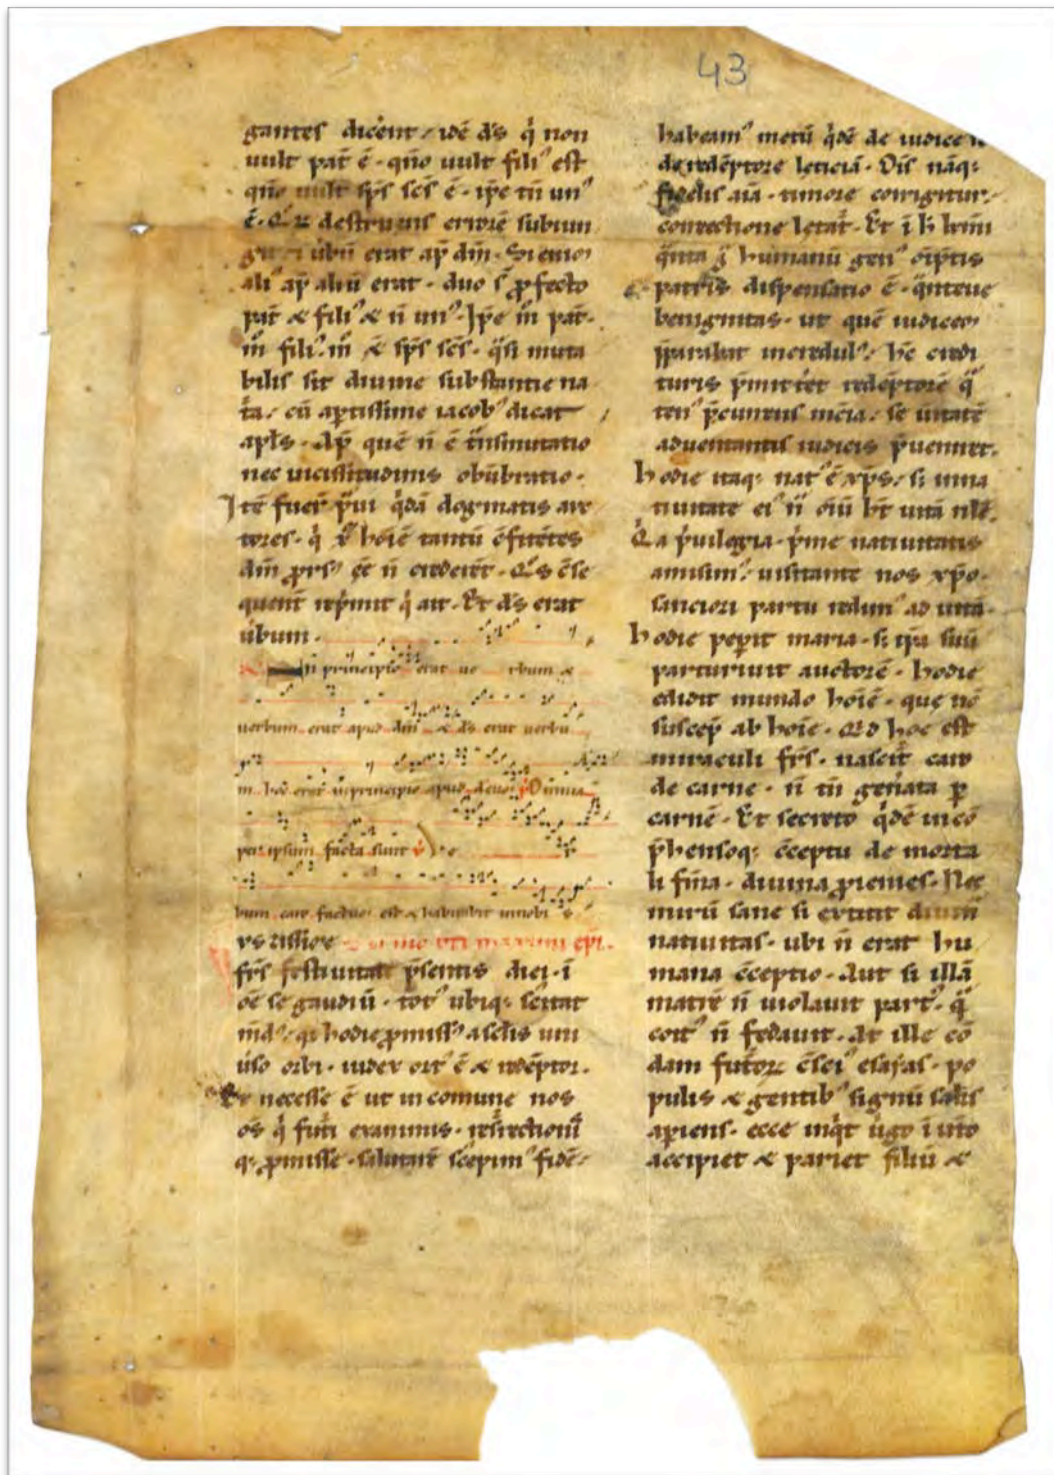 43
gantes dicerent / idē d̄s q̇ non
uult pat̄ ē · qn̄o uult fili᷒ est
qn̄o uult sp̄s sc̄s ē · ip̄e tn̄ un᷒
ē · destruens errorē subiun
git ūbū erat ap̄ dm̄ · Si eni
ali᷒ ap̄ aliū erat · duo s̄ ꝓfecto
pat̄ & fili᷒ & n̄ un᷒ · Ip̄e m̄ pat̄ ·
m̄ fili᷒ · m̄ & sp̄s sc̄s · q̄si muta
bilis sit diuine substantie na
t̄a / cū aptissime iacob᷒ dicat
apl̄s · Ap̄ quē n̄ ē t̄nsmutatio
nec uicissitudinis obūbratio ·
Itē fuer̄ p̄ui q̇dā dogmatis auc
tores · q̇ hoīē tantū ꝯfitētes
dm̄ ꝓrs᷒ eē n̄ crederēt · Q̄s ꝯse
quent̄ rep̄mit q̇ ait · Et d̄s erat
ūbum ·
In principio erat ue rbum &
uerbum erat apud dm̄ & d̄s erat uerbū
hoc erat inprincipio apud deum Omnia
per ipsum facta sunt
bum caro factum est & habitabit innobi s
maximi ep̄i ·
fr̄s festiuitat̄ p̄sentis diei · ī
oē se gaudiū · tot᷒ ubiq; letat̄
md᷒ · q; hodie ꝓmiss᷒ a sclis uni
ūso orbi · iudex ort᷒ ē & redēptor ·
necesse ē ut in comune nos
os q̇ fut̄i eramus · resr̄rectionis
q; ꝓmisse · salutarē scepim᷒ fidē ·
habeam᷒ metū q̇dē de iudice
de redēptore leticiā · Ois nāq;
fidelis aīa · timore corrigitur ·
correctione letat̄ · Et ī h̄
q̄nta ḡ humanū gen᷒ oīp̄tis
patris dispensatio ē · q̄nteue
benignitas · ut quē iudicem
p̄parabat incredul᷒ · hē credi
turis p̄mitt̄et redēptorē q̄
ten᷒ p̄currens m̄cia / se ūitatē
aduentantis iudicis p̄ueniret ·
hodie itaq; nat᷒ ē xp̄s · s; in na
tiuitate ei᷒ n̄ oīū h̄t uitā
Q̇a p̄uilegia · p̄me natiuitatis
amisim᷒ · uisitante nos xp̄o ·
sinciori partu redim᷒ ad uitā ·
hodie pepit maria · s; ip̄a suū
parturiuit auctorē · hodie
edidit mundo hoīē · que nō
suscep̄ ab hoīe · Qd hoc est
miraculi fr̄s · nascit̄ caro
de carne · n̄ tn̄ gen̄ata p
carnē · Et secreto q̇dē incō
p̄hensoq; ꝯceptu de morta
li fīna · diuina ꝓcines · Nec
mirū sane si extitit diuin̄
natiuitas · ubi n̄ erat hu
mana ꝯceptio · Aut si illā
matrē n̄ uiolauit part᷒ · q̄
coit᷒ n̄ fedauit · At ille cō
dam futoꝝ esaias · po
pulis & gentib᷒ signū salis
apiens · ecce inq̇t ūgo ī uto
accipiet & pariet filiū &